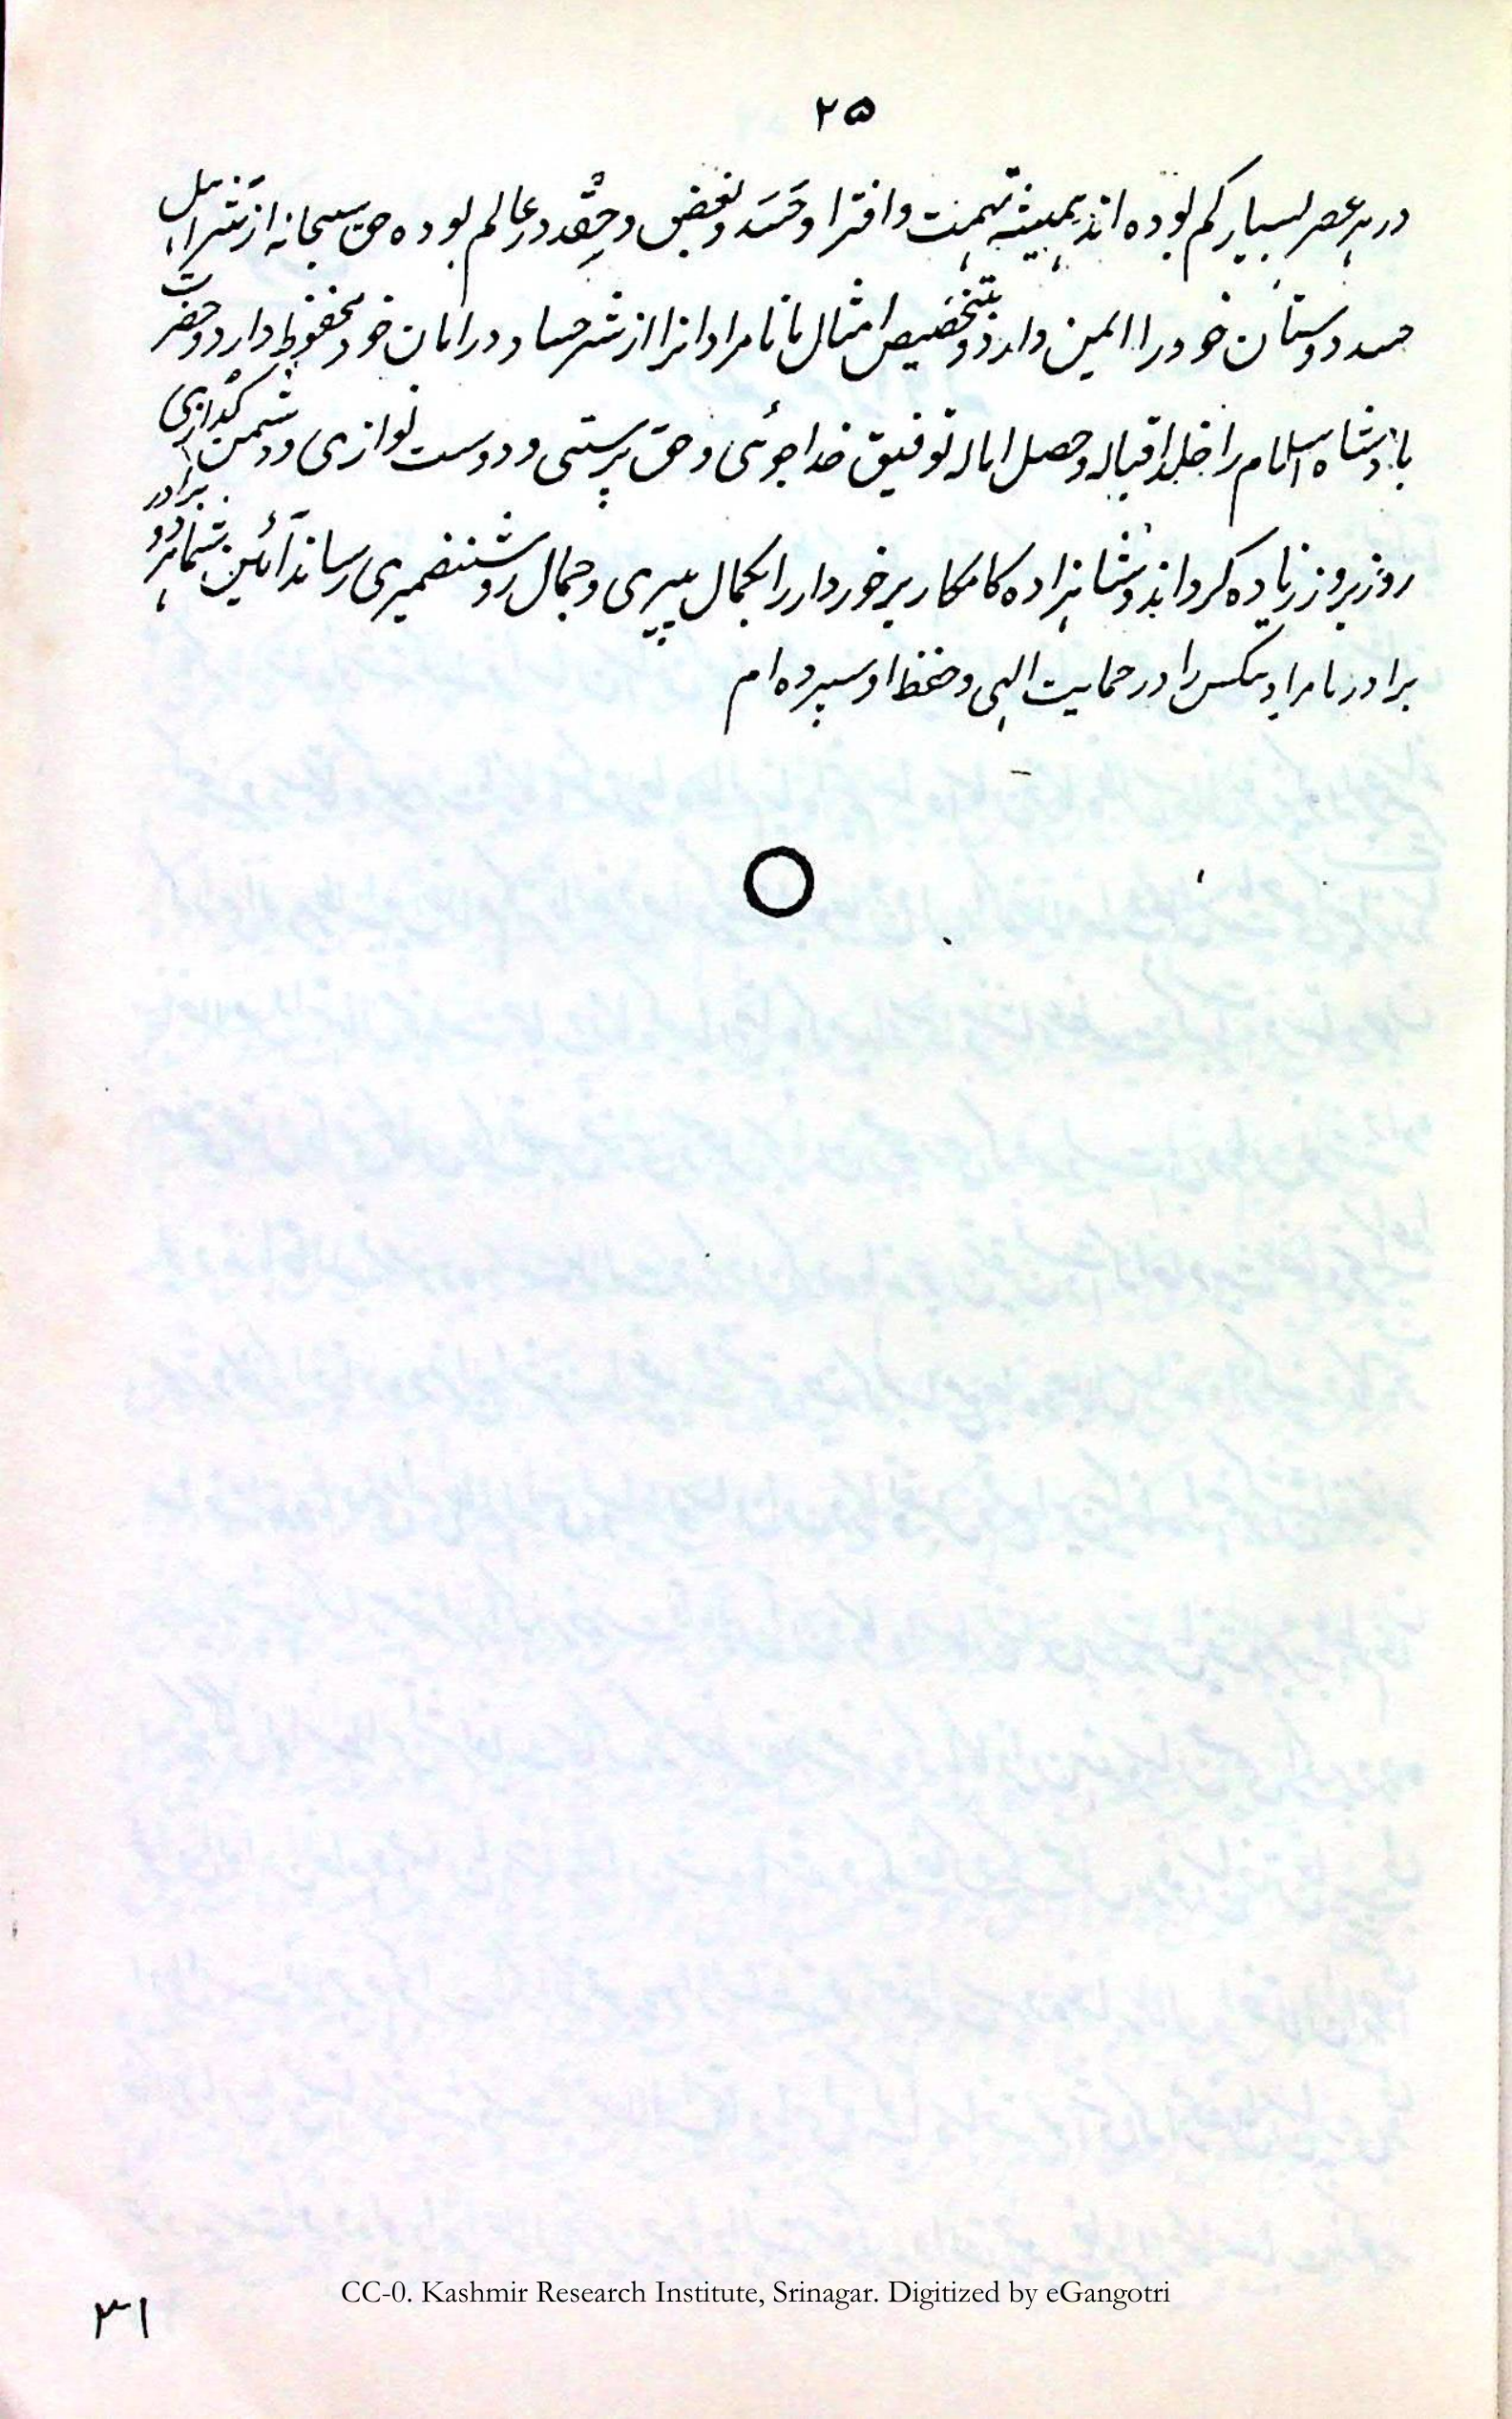 ۲۵
در ہر عصر بسیار کم بودہ اند ہمیشہ تہمت و افترا و حَسَد و بغض و حِقْد در عالم بودہ حق سبحانہ از شر اہل
حسد دوستان خود را ایمن دارد و بتخصیص امثال ما نامرادانرا از شر حساد در امان خود محفوظ دارد و حضرت
بادشاہ اسلام را خلد اقبالہ و حصل امالہ توفیق خداجوئی و حق پرستی و دوست نوازی و دشمن گدازی
روز بروز زیادہ گرداند و شاہزادہ کامگار برخوردار را بکمال پیری و جمال روشنضمیری رساند آمین شما ہر دو برادر
برادر نامراد بیکس را در حمایت الہی و حفظ او سپردہ ام
CC-0. Kashmir Research Institute, Srinagar. Digitized by eGangotri
۳۱